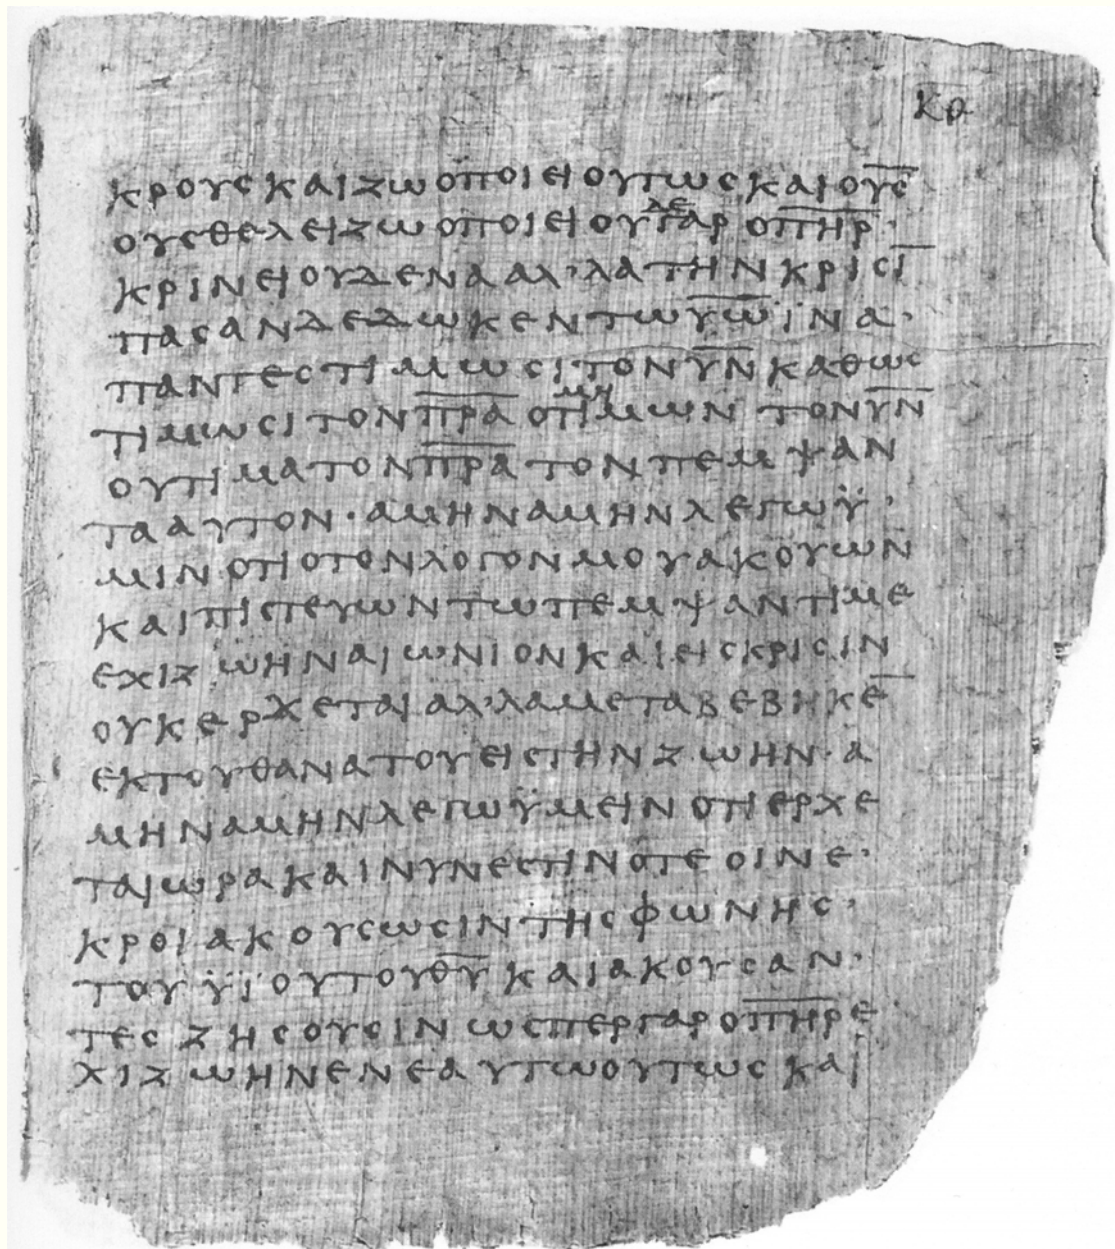 κρ
κρους και ζωοποιει ουτως και ο υ̅ς̅
ους θελει ζωοποιει ου`δε´ γαρ ο π̅η̅ρ̅·
κρινει ουδενα αλ᾽λα την κρισι̅
πασαν δεδωκεν τω υ̅ω̅ ϊνα·
παντες τιμωσι τον υ̅ν̅ καθως
τιμωσι τον π̅ρ̅α̅ ο `μη´ τιμων τον υ̅ν̅
ου τιμα τον π̅ρ̅α̅ τον πεμψαν
τα αυτον· αμην αμην λεγω ϋ·
μιν οτι ο τον λογον μου ακουων
και πιστευων τω πεμψαντι με
εχι ζωην αιωνιον και εις κρισιν
ουκ ερχεται αλ᾽λα μεταβεβηκε̅
εκ του θανατου εις την ζωην· α
μην αμην λεγω ϋμειν οτι ερχε
ται ωρα και νυν εστιν οτε οι νε·
κροι ακουσωσιν της φωνης·
του ϋϊου του θ̅υ̅ και ακουσαν·
τες ζησουσιν ωσπερ γαρ ο π̅η̅ρ̅ ε
χι ζωην εν εαυτω ουτως και